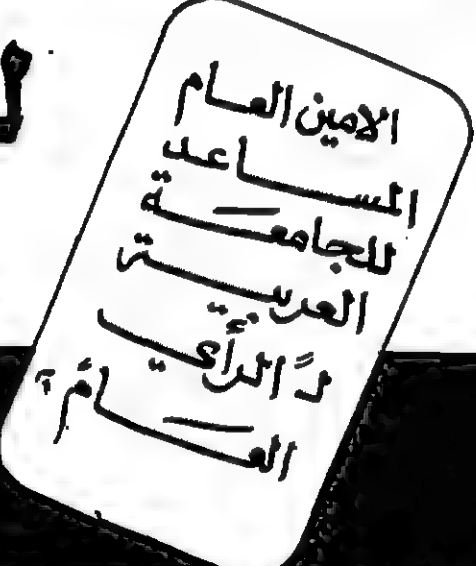 الامين العـام
المسـاعـد
للجامعـة
العربيـة
لـ "الرأي
العـام"